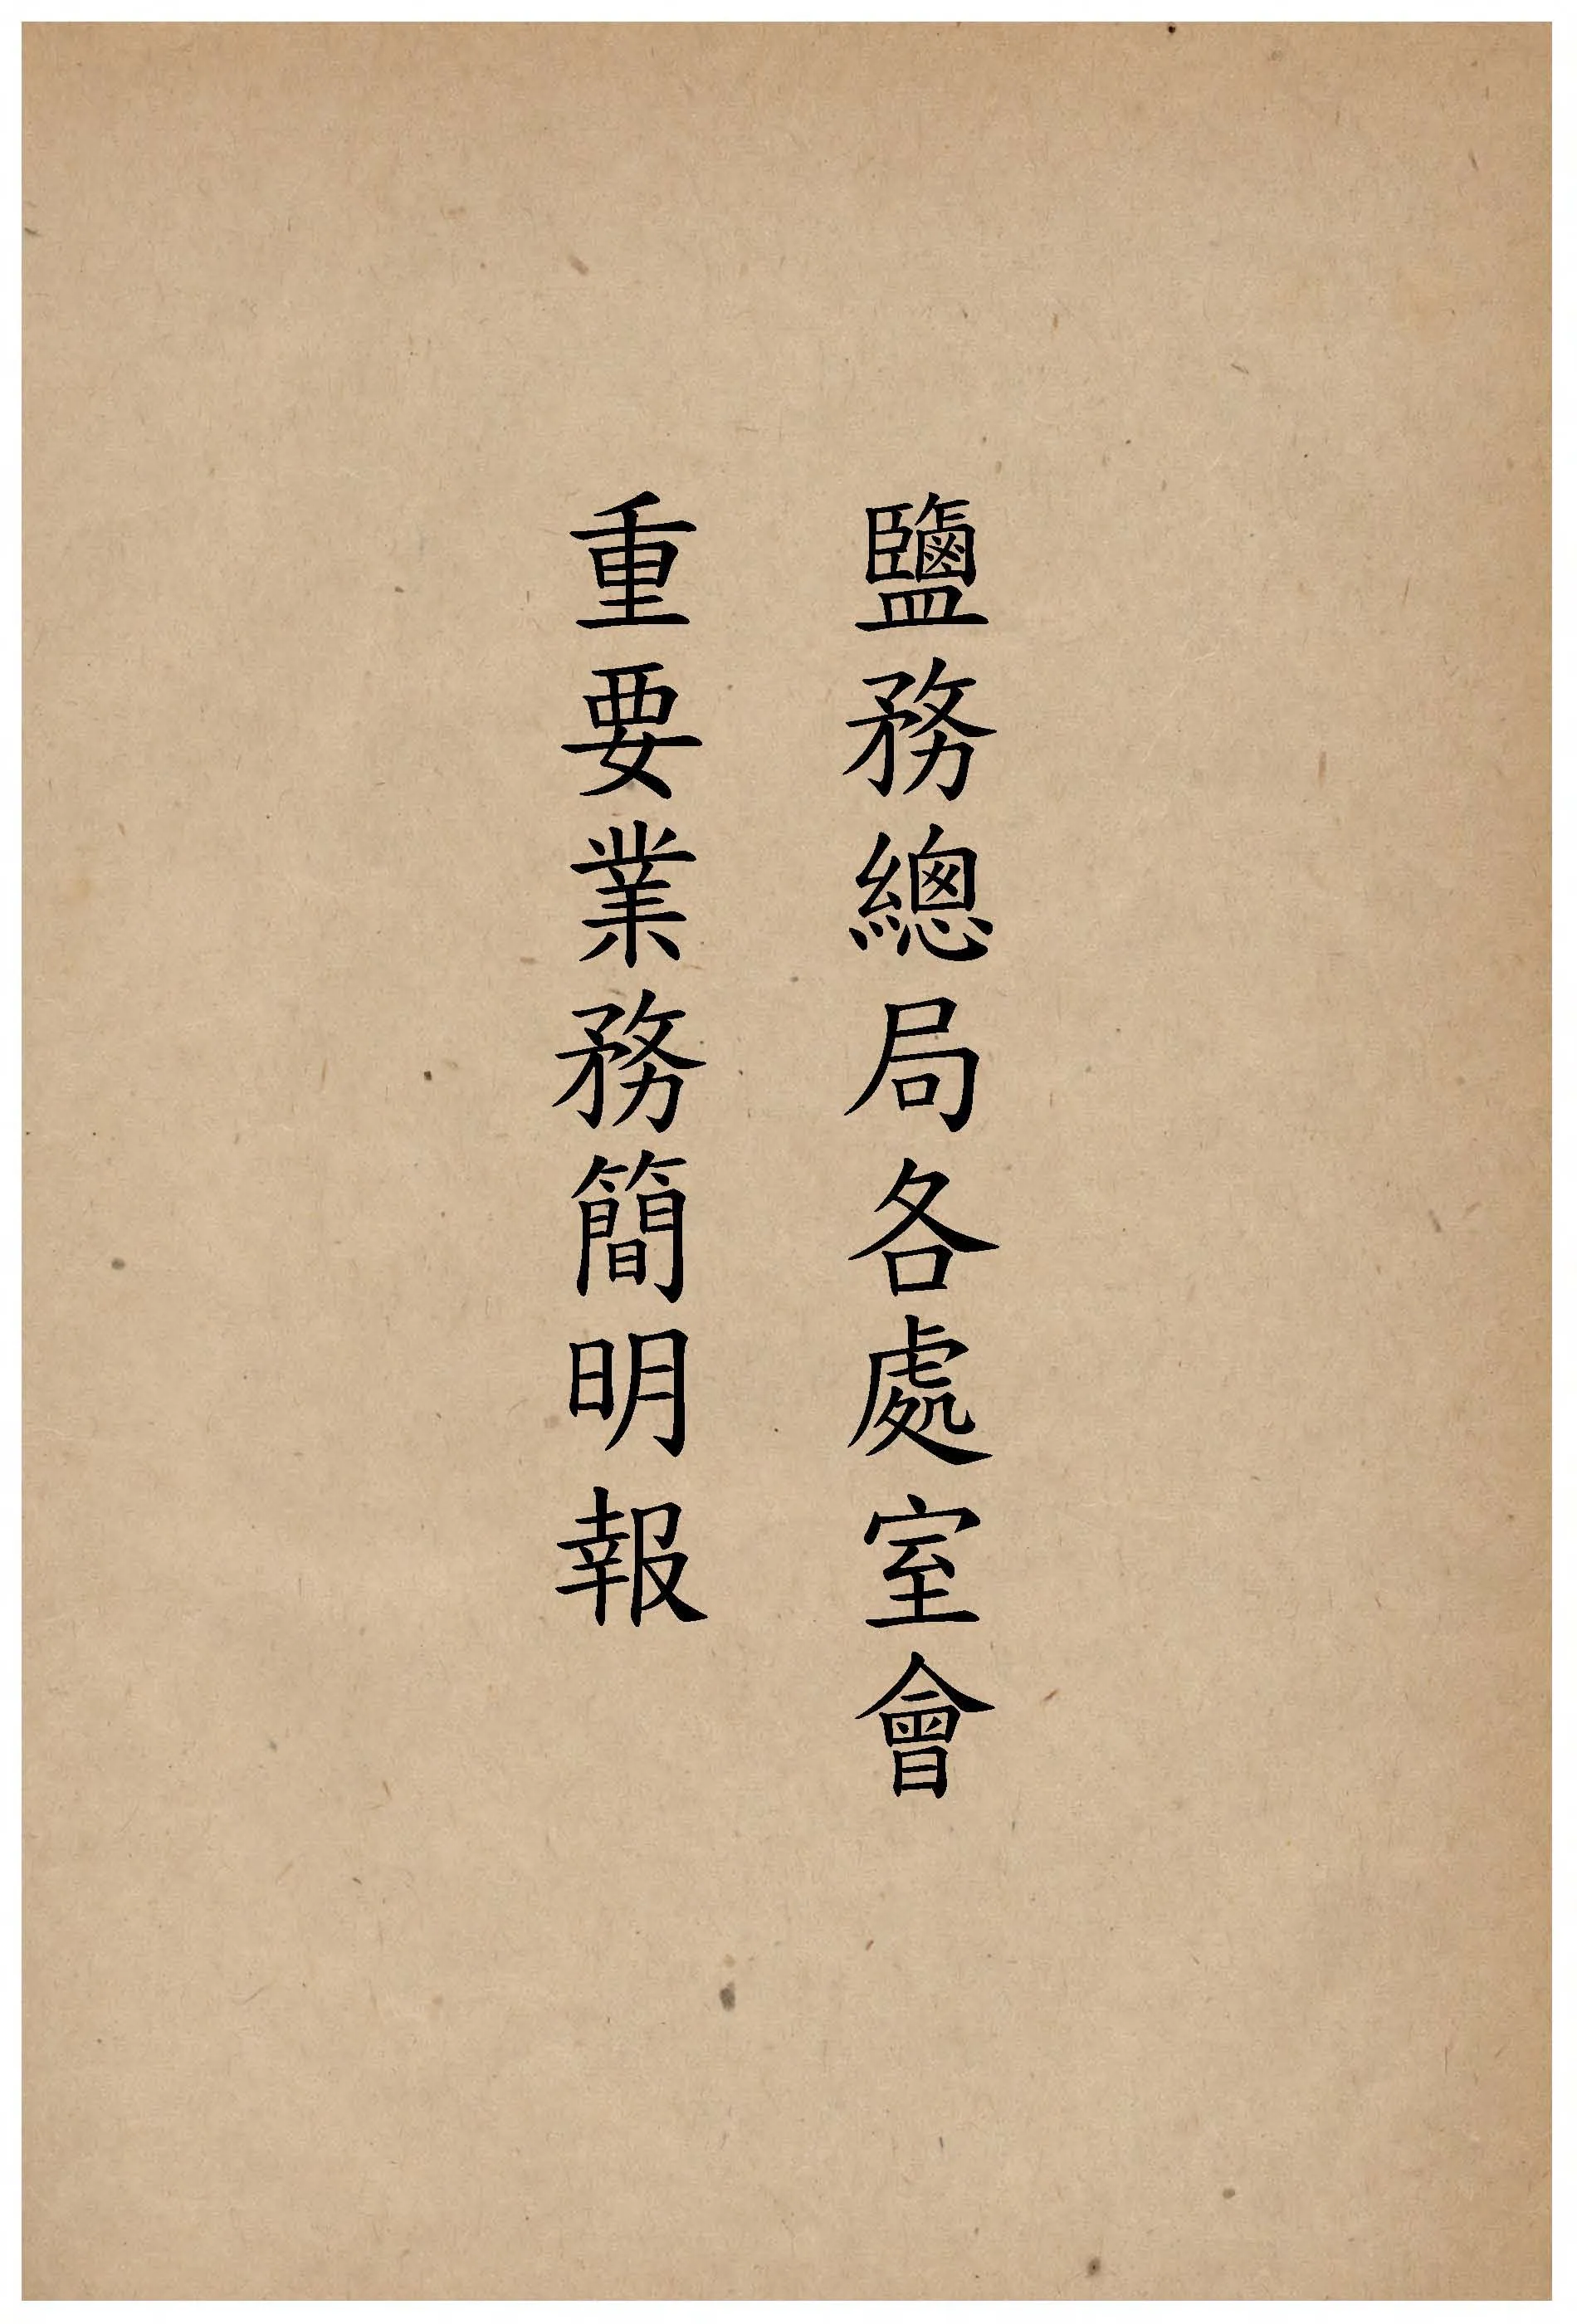 鹽務總局各處室會
重要業務簡明報